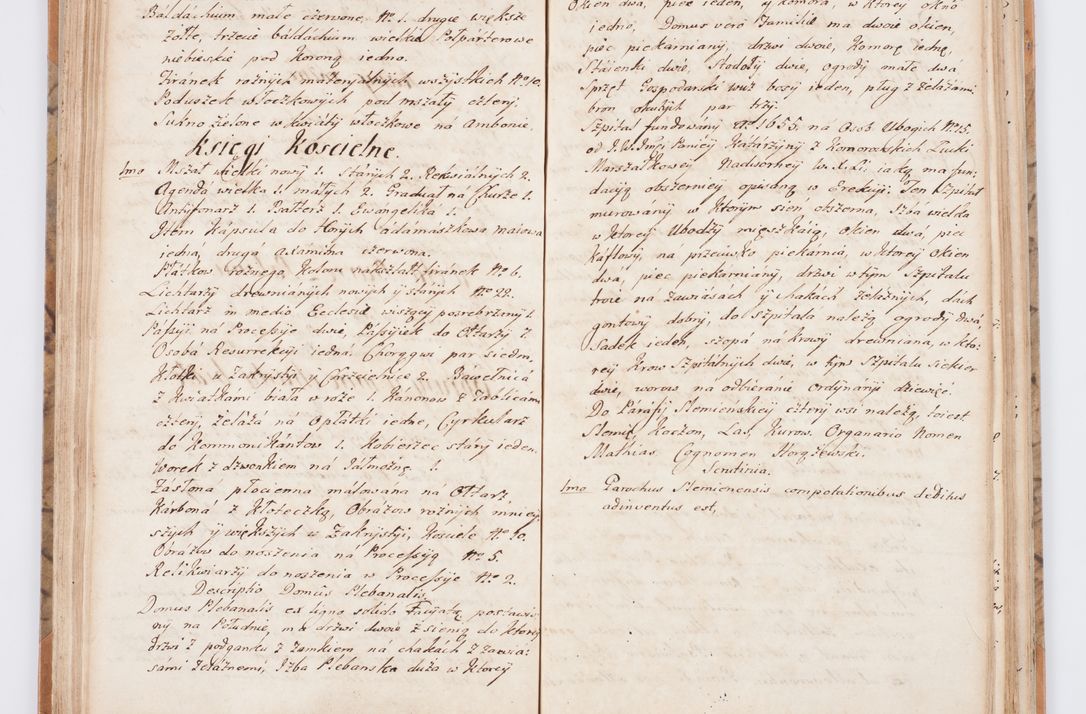 Baldachium małe czerwone, No 1. drugie większe
żołte, trzecie baldachium wielkie Połparterowe
niebieskie pod Koroną iedno.
Firanek rożnych materyalnych wszystkich No 10.
Poduszek włoczkowych pod mszały cztery.
Sukno zielone w kwiaty włoczkowe na Ambonie.
Księgi Koscielne.
1mo Mszał wielki nowy 1. Starych 2. Rekwialnych 2.
Agenda wielka 1. małych 2. Graduał na Chorze 1.
Antifonarz 1. Psałterz 1. Ewangelika 1.
Item Kapsula do Chorych adamaszkowa maiowa
iedna, druga axamitna czerwona.
Płatkow rożnego Koloru nakształt firanek No 6.
Lichtarzy drewnianych nowych y starych No 22.
Lichtarz in medio Ecclesie wiszący posrebrzany 1.
Passyi na Processye dwie, Passyiek do Ołtarzy 7.
Osoba Resurrekcyi iedna. Chorągwi par siedm.
Kłotki u Zakrystyi y Chrzcielnice 2. Bawełnica
z kwiatkami biała w roże 1. Kanonow z Tablicami
cztery, żelaza na Opłatki iedne, Cyrkularz
do Kommonikantow 1. Kobierzec stary ieden.
Worek z dzwonkiem na Jałmożnę 1.
Zasłona płocienna malowana na Ołtarz.
Karbona z Kłoteczką, Obrazow rożnych mniey-
szych y większych w Zakrystyi, Kosciele No 10.
Obrazow do noszenia na Processyą No 5.
Relikwiarzy do noszenia w Processye No 2.
Descriptio Domus Plebanalis
Domus Plebanalis ex ligno solido facyatą postawio-
ny na Południe, ma drzwi dwoie z sienią do ktorey
drzwi z podganku z zamkiem na chakach z zawia-
sami żelaznemi, Izba Plebanska duża w ktorey
Okien dwa, piec ieden, y Komora, w ktorey okno
iedno, Domus vero Familie ma dwoie okien,
piec piekarniany, drzwi dwoie, Komorę iedną,
Staienki dwie, Stodoły dwie, ogrody małe dwa
Sprzęt Gospodarski woz bosy ieden, pług z żelazami
bron okutych par trzy.
Szpital fundowany Ao 1655. na Osob Ubogich No 15.
od J. W. Jmsci Paniey Katarzyny z Komorowskich Zucki
Marszałkowey Nadworney W. X. Lit. iaką ma fun-
dacyą obszerniey opisaną w Erekcyi: Ten Szpital
murowany w ktorym sień obszerna, Izba wielka
w ktorey Ubodzy mięszkaią, okien dwa, piec
kaflowy, na przeciwko piekarnia, w ktorey okien
dwa, piec piekarniany, drzwi w tym Szpitalu
troie na zawiasach y chakach żelaznych, dach
gontowy dobry, do szpitala należą ogrody dwa,
Sadek ieden, szopa na krowy drewniana, w kto-
rey Krow szpitalnych dwie, w tym Szpitalu siekier
dwie, worow na odbieranie ordynaryi dziewięć.
Do Parafij Slemienskiey cztery wsi należą, toiest
Slemię, Koczon, Las, Kurow. Organario Nomen
Mathias Cognomen Horązewski.
Scrutinia.
1mo Parochus Slemienensis compotationibus deditus
adinventus est,